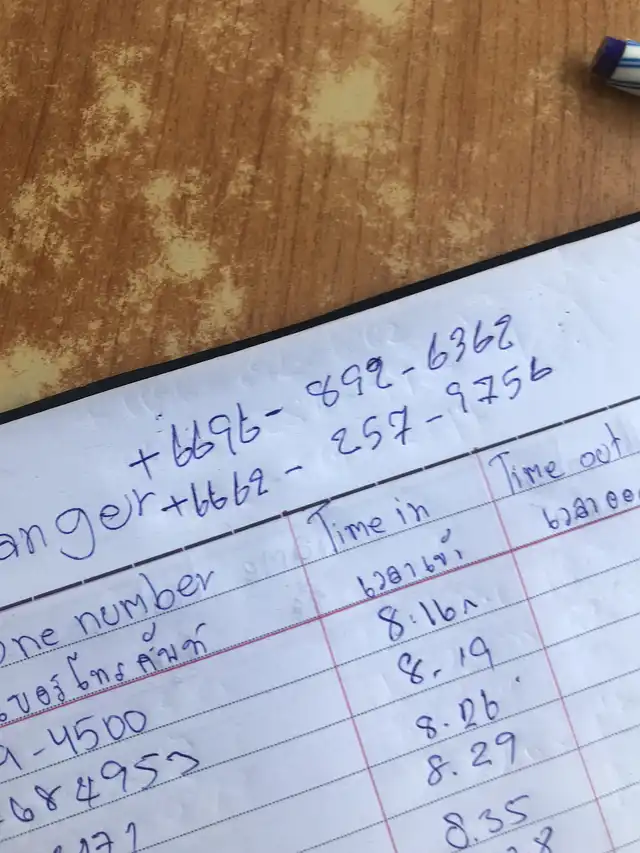 +6696- 892-6362
anger+6662 - 257-9756
Time in
Time out
one number
เวลาเข้า
เวลาออ
เบอร์โทรศัพท์
8.16
-4500
8.19
684953
8.26
8.29
171
8.35